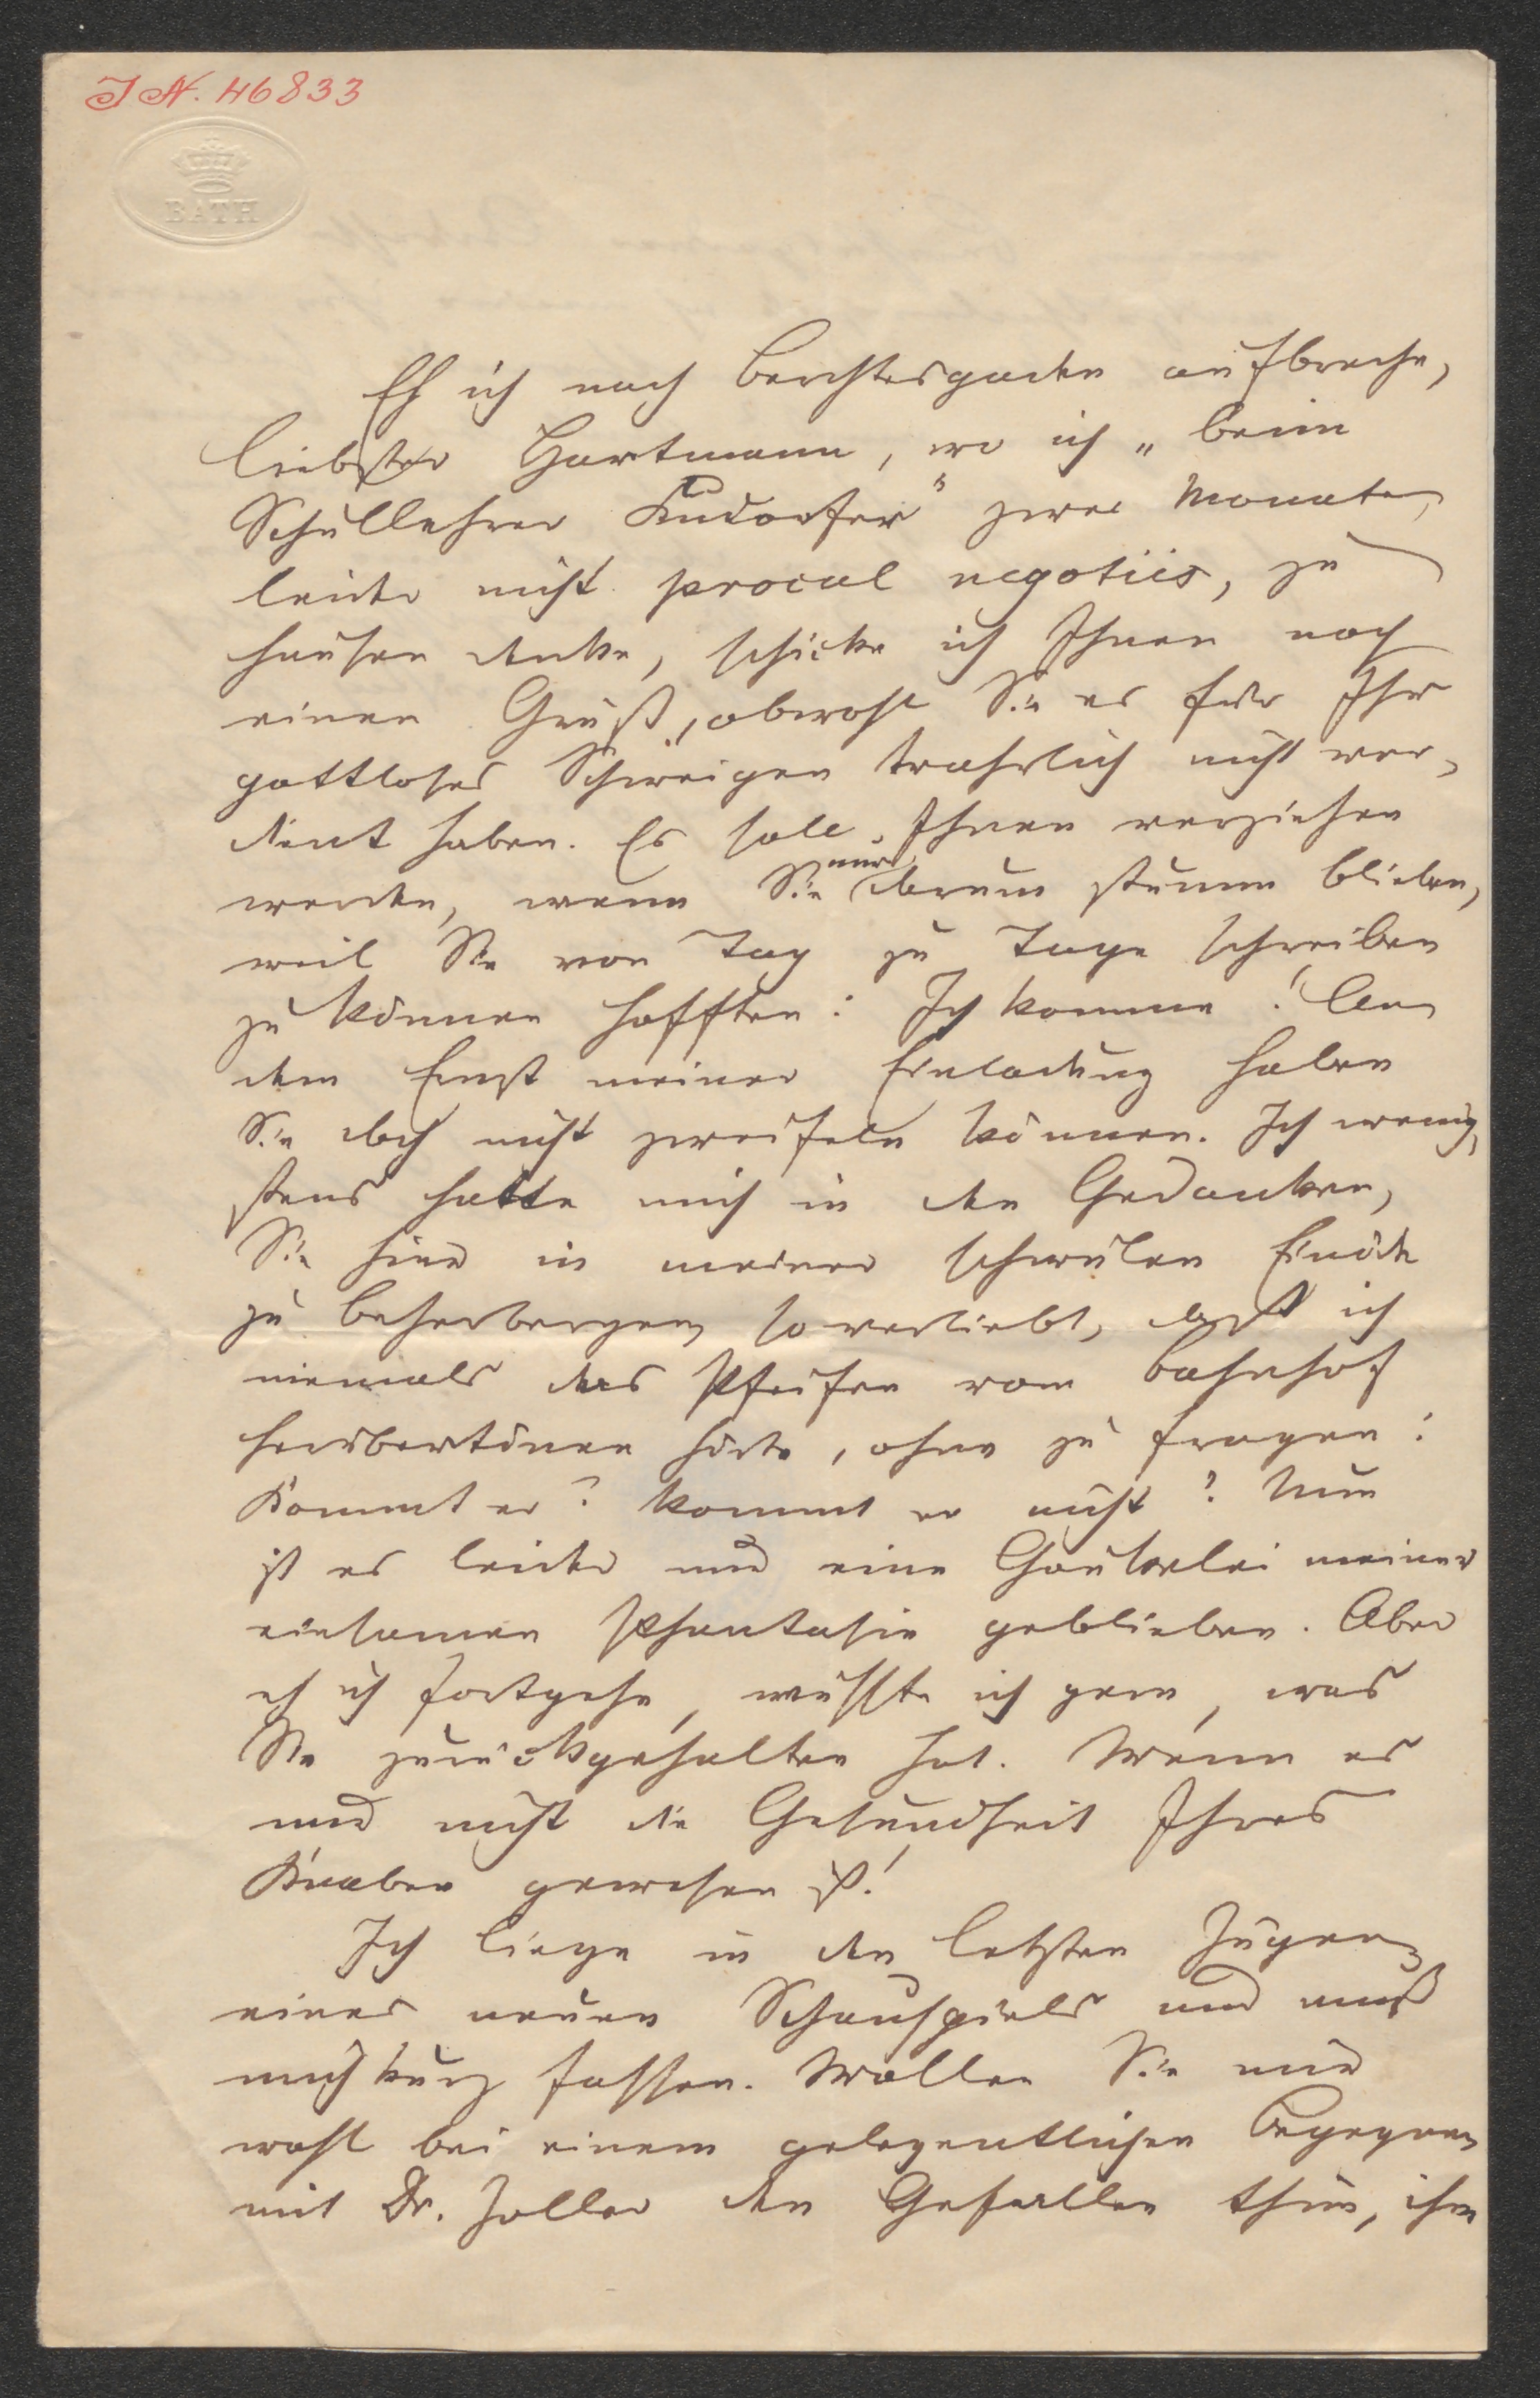 J.N. 46833
BATH
Eh ich nach Berchtesgaden aufbreche,
liebster Hartmann, wo ich „beim
Schullehrer Kudorfer" zwei Monate,
leider nicht procul negotiis, zu
hausen denke, schicke ich Ihnen noch
einen Gruß, obwohl Sie es für Ihr
gottloses Schweigen wahrlich nicht ver-
dient haben. Es soll Ihnen verziehen
werden, wenn Sie nur darum stumm blieben,
weil Sie von Tag zu Tage schreiben
zu können hofften: Ich komme! An
dem Ernst meiner Einladung haben
Sie doch nicht zweifeln können. Ich wenig-
stens hatte mich in den Gedanken,
Sie hier in meiner schwülen Einöde
zu beherbergen so verliebt, daß ich
niemals das Pfeifen vom Bahnhof
herübertönen hörte, ohne zu fragen:
Kommt er? kommt er nicht? Nun
ist es leider nur eine Gaukelei meiner
einsamen Phantasie geblieben. Aber
eh ich fortgehe, wüsste ich gern, was
Sie zurückgehalten hat. Wenn es
nur nicht die Gesundheit Ihres
Knaben gewesen ist!
Ich liege in den letzten Zügen
eines neuen Schauspiels und muß
mich kurz fassen. Wollen Sie mir
wohl bei einem gelegentlichen Begegnen
mit Dr. Zoller den Gefallen thun, ihm